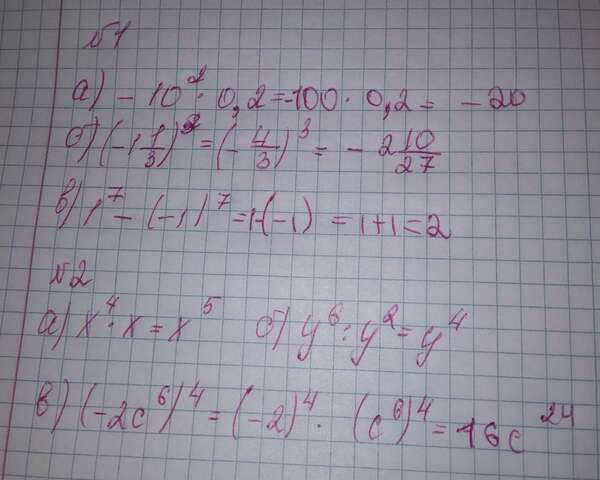 №1
а) - 10² · 0,2 = -100 · 0,2 = - 20
б) (-1 1/3)³ = (- 4/3)³ = - 2 10/27
в) 1⁷ - (-1)⁷ = 1-(-1) = 1+1=2
№2
а) x⁴ · x = x⁵ б) y⁶ : y² = y⁴
в) (-2c⁶)⁴ = (-2)⁴ · (c⁶)⁴ = 16c²⁴